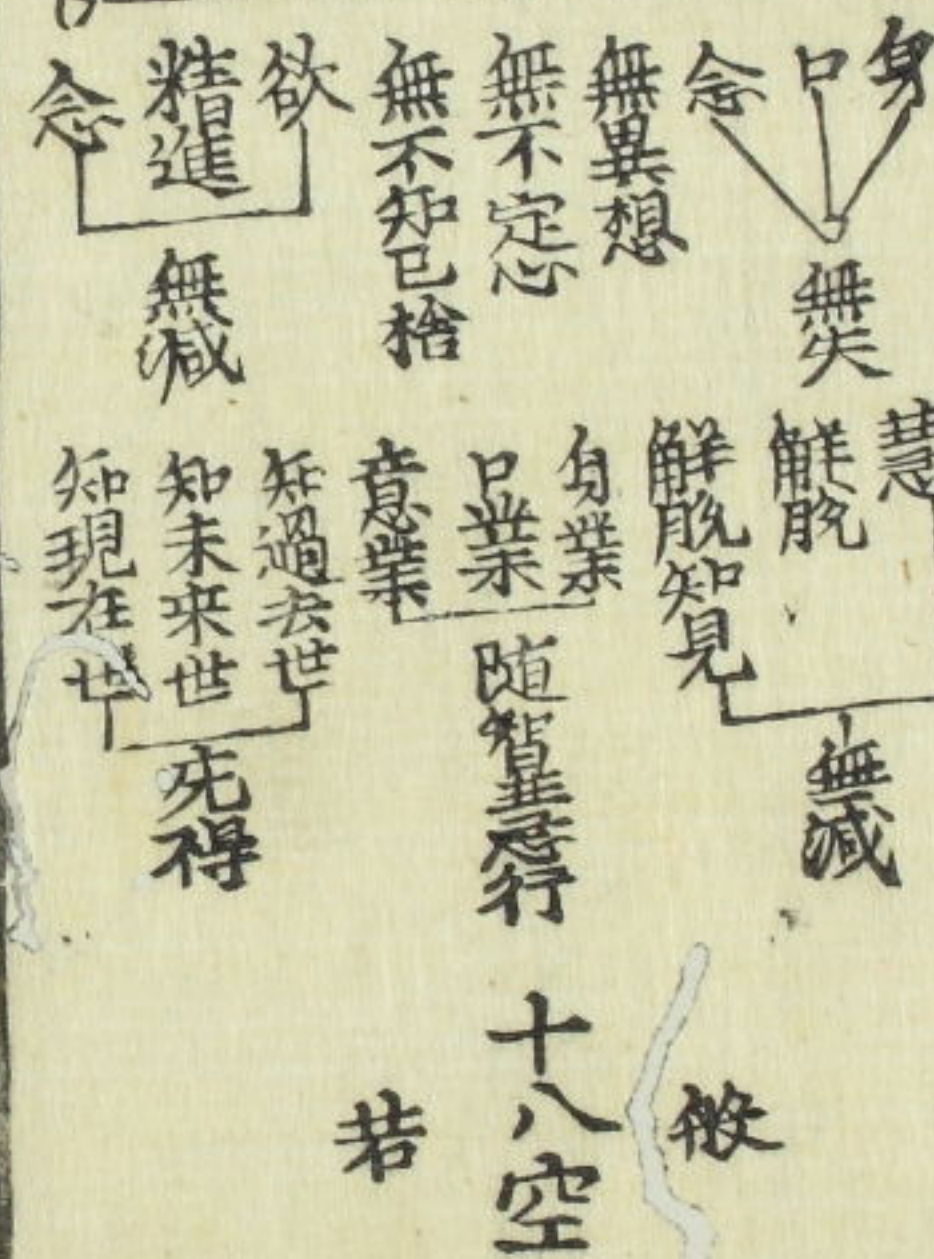 身
口
念
無失
無異想
無不定心
無不知已捨
欲
精進
念
無減
慧
解脱
解脱知見
無減
身業
口業
意業
随智慧行
知過去世
知未来世
知現在世
十八空
般
若